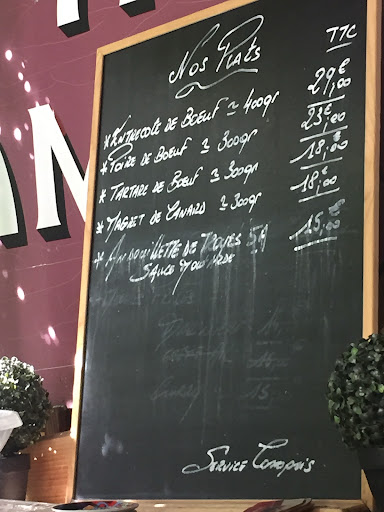 Nos Plats TTC
* Entrecôte de Boeuf ≃ 400gr 29,00€
* Poire de Boeuf ≃ 300gr 23,00€
* Tartare de Boeuf ≃ 300gr 18,00€
* Magret de Canard ≃ 300gr 18,00€
* Andouillette de Troyes 5A 15,00€
Sauce Moutarde
15
Service Compris